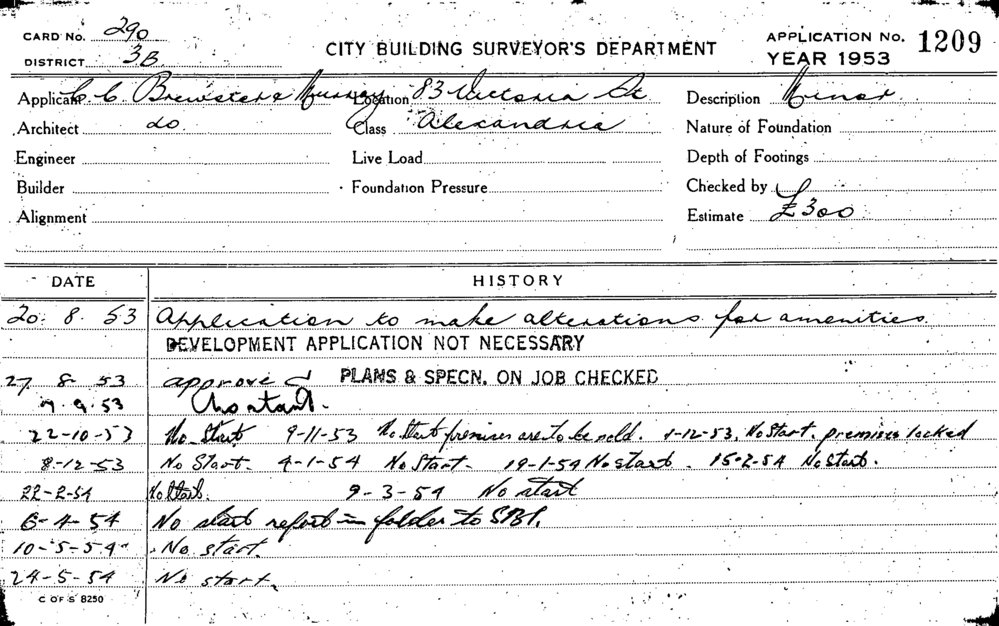 CARD No. 290
DISTRICT 3B
CITY BUILDING SURVEYOR'S DEPARTMENT
APPLICATION No. 1209
YEAR 1953
Applicant C. C. Brewster & Murray Location 83 Victoria St Description Minor
Architect do Class Alexandria Nature of Foundation
Engineer Live Load Depth of Footings
Builder Foundation Pressure Checked by
Alignment Estimate £300
DATE HISTORY
20. 8. 53 Application to make alterations for amenities
DEVELOPMENT APPLICATION NOT NECESSARY
27 8- 53 approved PLANS & SPECN. ON JOB CHECKED
7. 9. 53 No start.
22-10-53 No Start 9-11-53 No Start premises are to be sold. 1-12-53. No Start. premises locked
8-12-53 No Start. 4-1-54 No Start. 19-1-54 No start. 15-2-54 No Start.
22-2-54 No Start. 9-3-54 No start
6-4-54 No start report in folder to SBI.
10-5-54 No start.
24-5-54 No start.
C OF S 8250